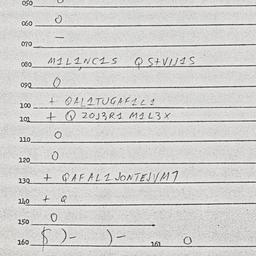 050
060 0
070 —
080 M1L1NC1S QS+VIJ1S
090 0
100 + QAL1TUGAF1L1
101 + Q 20J3R1 M1L3X
110 0
120 0
130 + QAFAL1JONTEJVM7
140 + Q
150 0
160 $)- )- 161 0